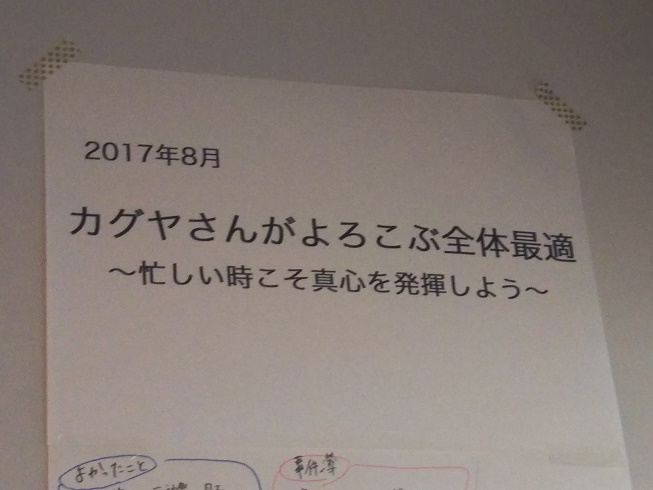 2017年8月
カグヤさんがよろこぶ全体最適
〜忙しい時こそ真心を発揮しよう〜
よかったこと
事件簿